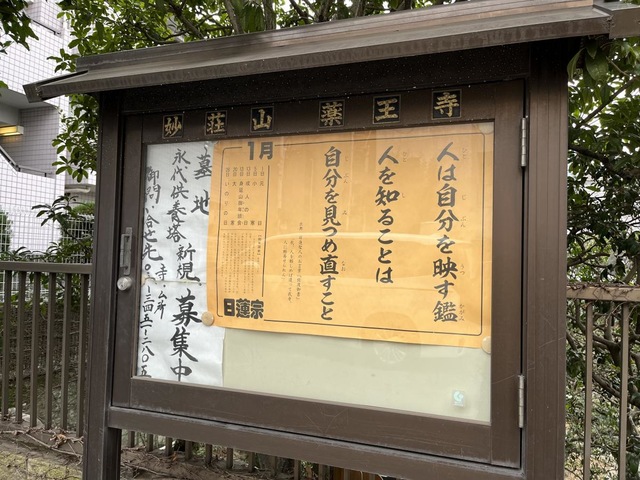 妙荘山 薬王寺
人は自分を映す鑑
人を知ることは
自分を見つめ直すこと
1月
日蓮宗
墓地
永代供養塔 新規 募集中
御問合せ先 寺ム所
〇三-三四五一-二八〇五